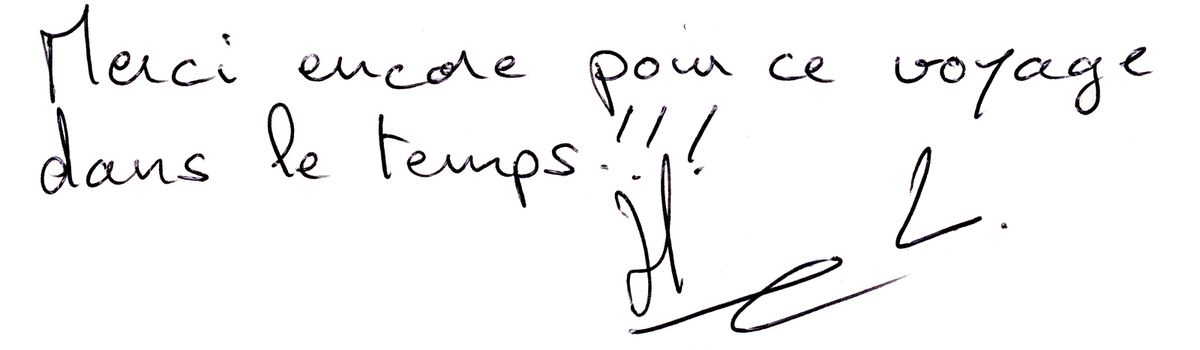 Merci encore pour ce voyage
dans le temps!!!
L.